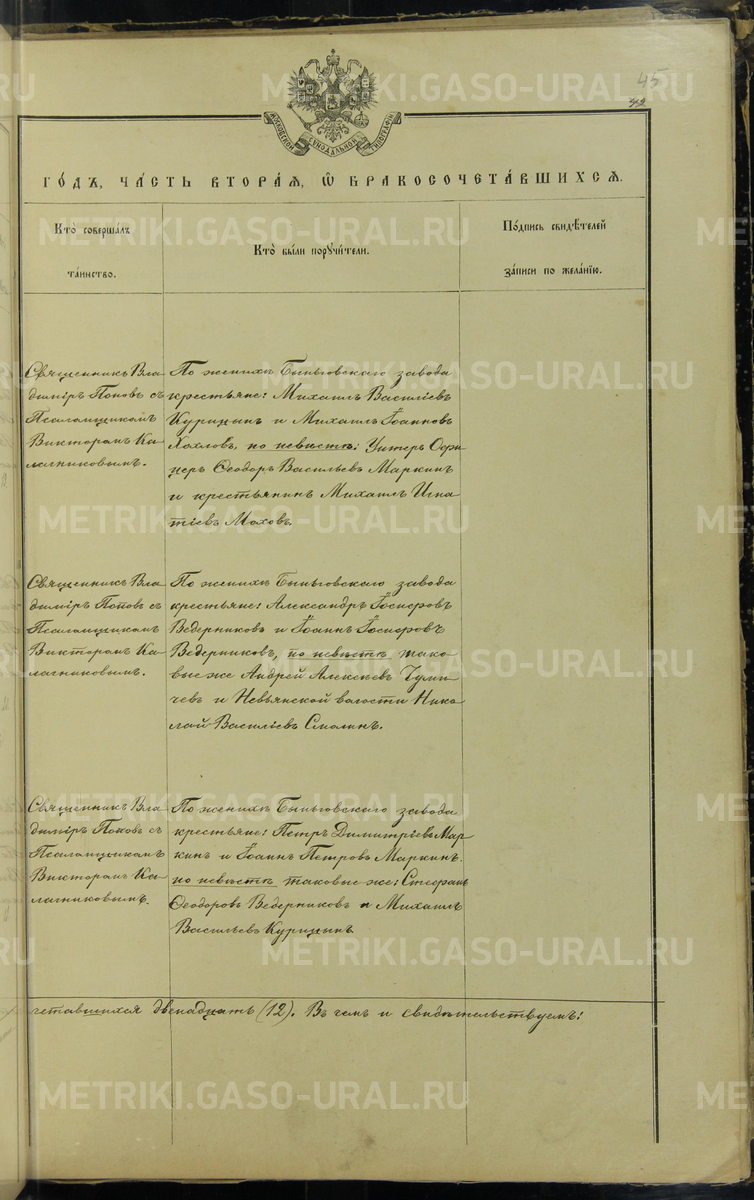 45
МОСКОВСКОЙ СѴНОДАЛЬНОЙ ТИПОГРАФІИ
ГО́ДЪ, ЧА́СТЬ ВТОРА́Я, Ѡ҆ БРАКОСОЧЕТА́ВШИХСЯ.
Кто̀ соверша́лъ
та́инство.
Кто̀ бы́ли порꙋчи́тели.
По́дпись свидѣ́телей
за́писи по жела́нїю.
Священникъ Вла-
димiръ Поповъ съ
Псаломщикомъ
Викторомъ Ка-
лагниковымъ.
По женихѣ Быньговскаго завода
крестьяне: Михаилъ Василіевъ
Курицынъ и Михаилъ Іоанновъ
Хохловъ, по невѣстѣ: Унтеръ Офи-
церъ Ѳеодоръ Васильевъ Маркинъ
и крестьянинъ Михаилъ Игна-
тіевъ Моховъ.
Священникъ Вла-
димiръ Поповъ съ
Псаломщикомъ
Викторомъ Ка-
лагниковымъ.
По женихѣ Быньговскаго завода
крестьяне: Александръ Іосифовъ
Ведерниковъ и Іоаннъ Іосифовъ
Ведерниковъ, по невѣстѣ тако-
вые же Андрей Алексѣевъ
и Невьянской волости Нико-
лай Василіевъ Смолинъ.
Священникъ Вла-
димiръ Поповъ съ
Псаломщикомъ
Викторомъ Ка-
лагниковымъ.
По женихѣ Быньговскаго завода
крестьяне: Петръ Димитріевъ Мар-
кинъ и Іоаннъ Петровъ Маркинъ.
по невѣстѣ таковые же: Стефанъ
Ѳеодоровъ Ведерниковъ и Михаилъ
Васильевъ Курицынъ
четавшихся двенадцать (12). Въ чемъ и свидѣтельствуемъ:
METRIKI.GASO-URAL.RU